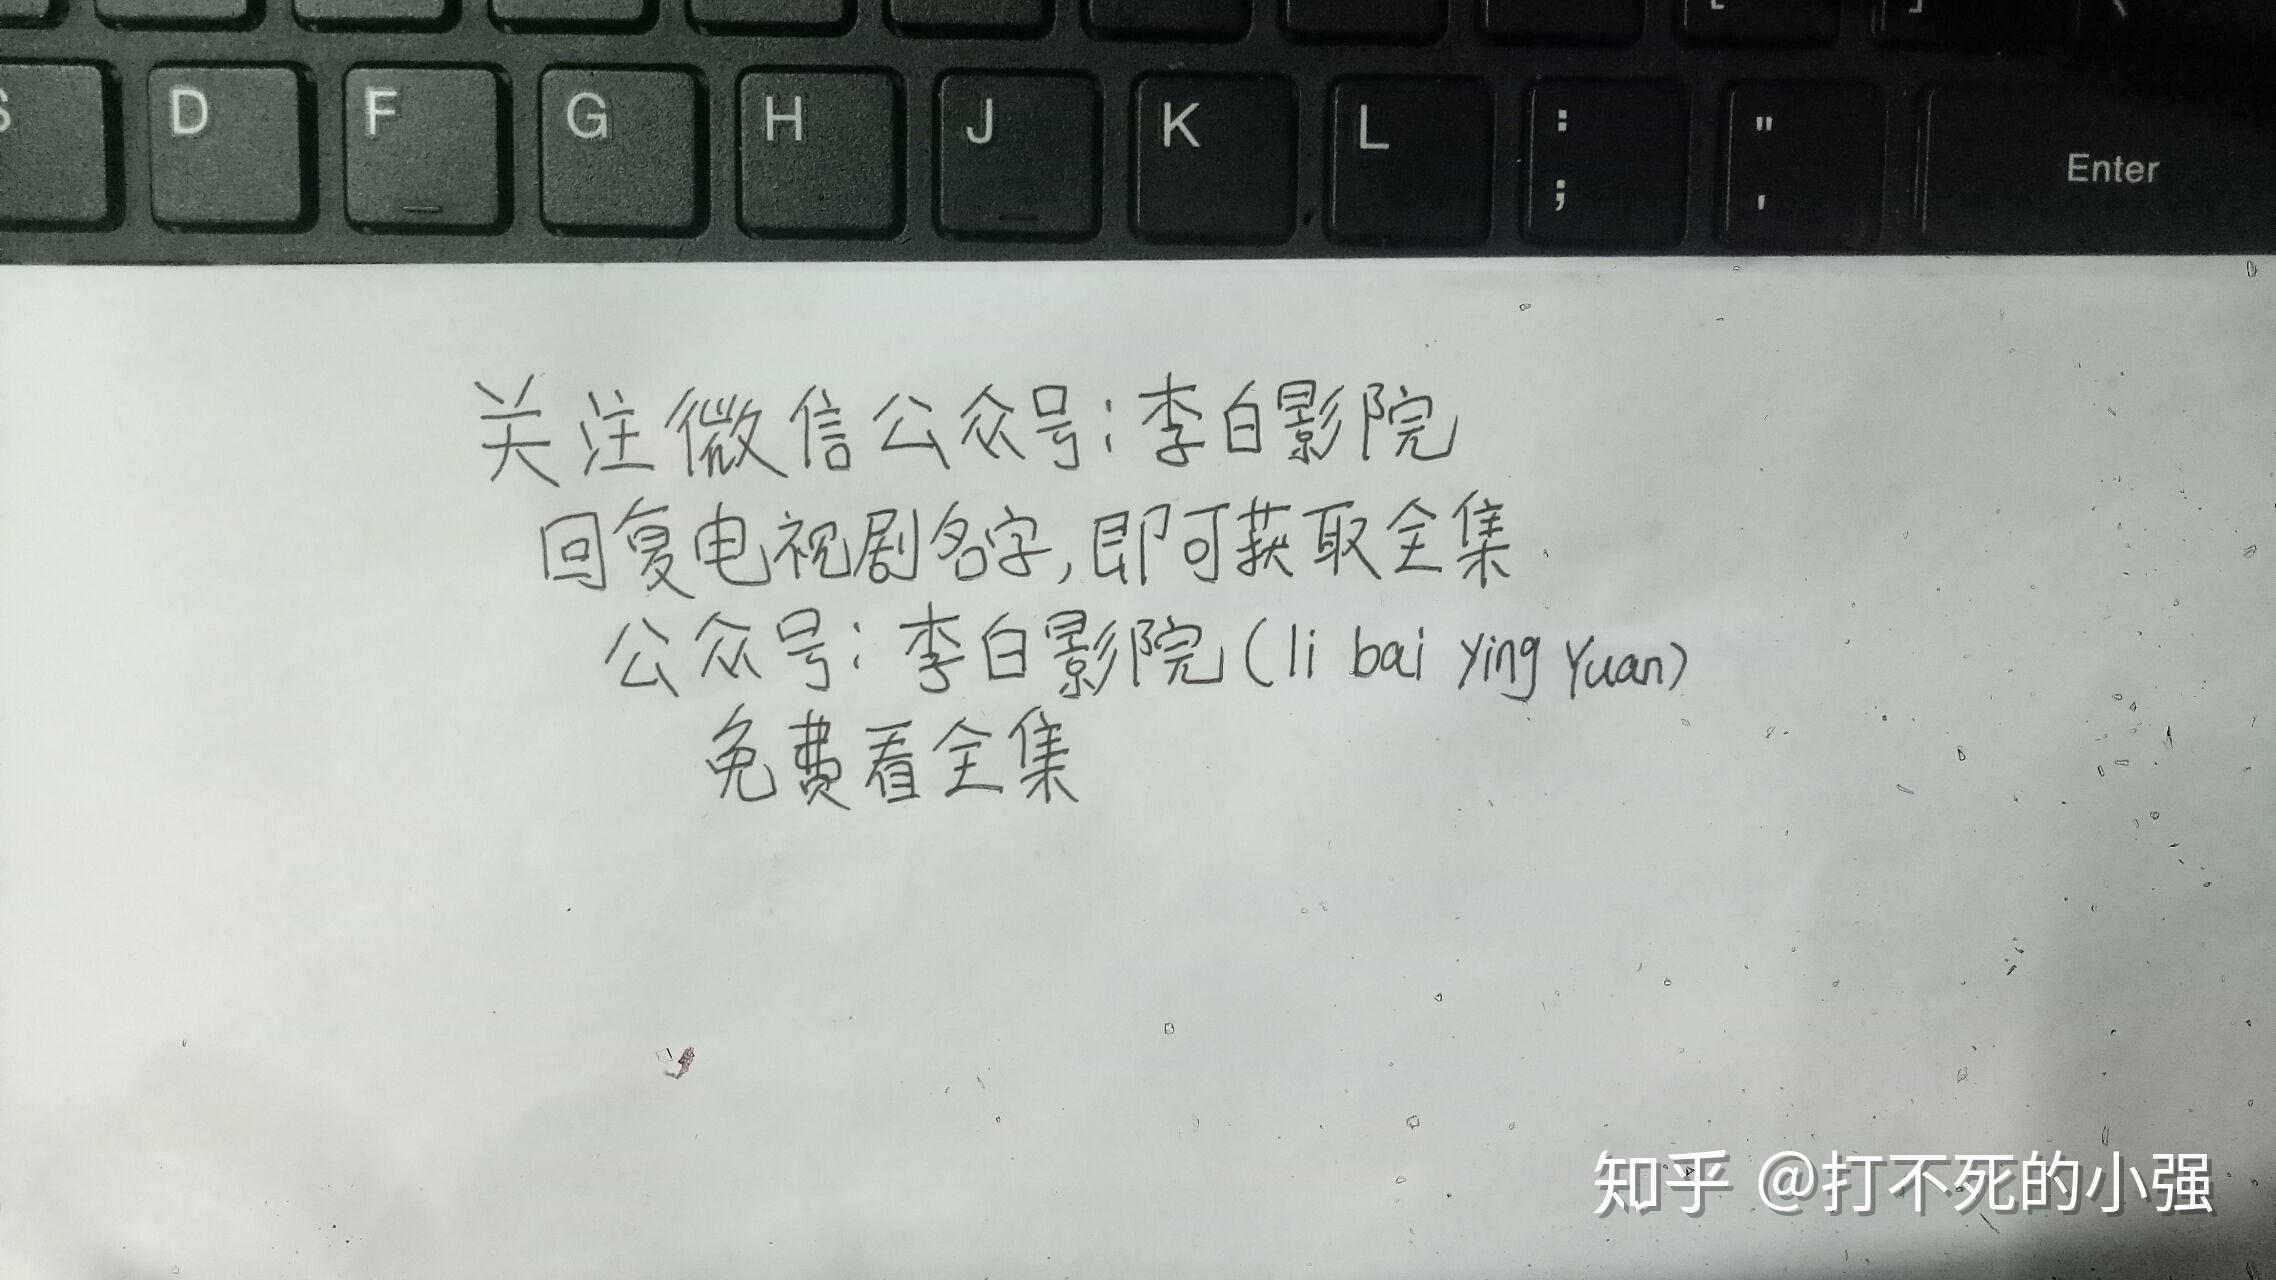 [ ] \
S D F G H J K L : ; " ' Enter
关注微信公众号:李白影院
回复电视剧名字,即可获取全集
公众号:李白影院(li bai ying yuan)
免费看全集
知乎 @打不死的小强